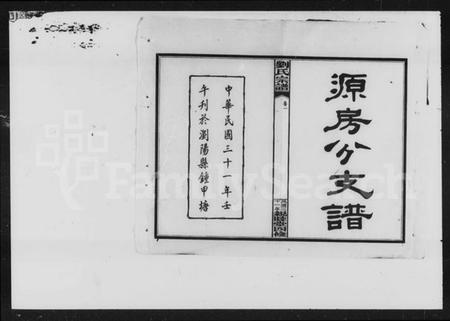 源房分支譜
劉氏宗譜
卷一
四修
中華民國三十一年壬
午刊於瀏陽縣鍾甲塘
FamilySearch